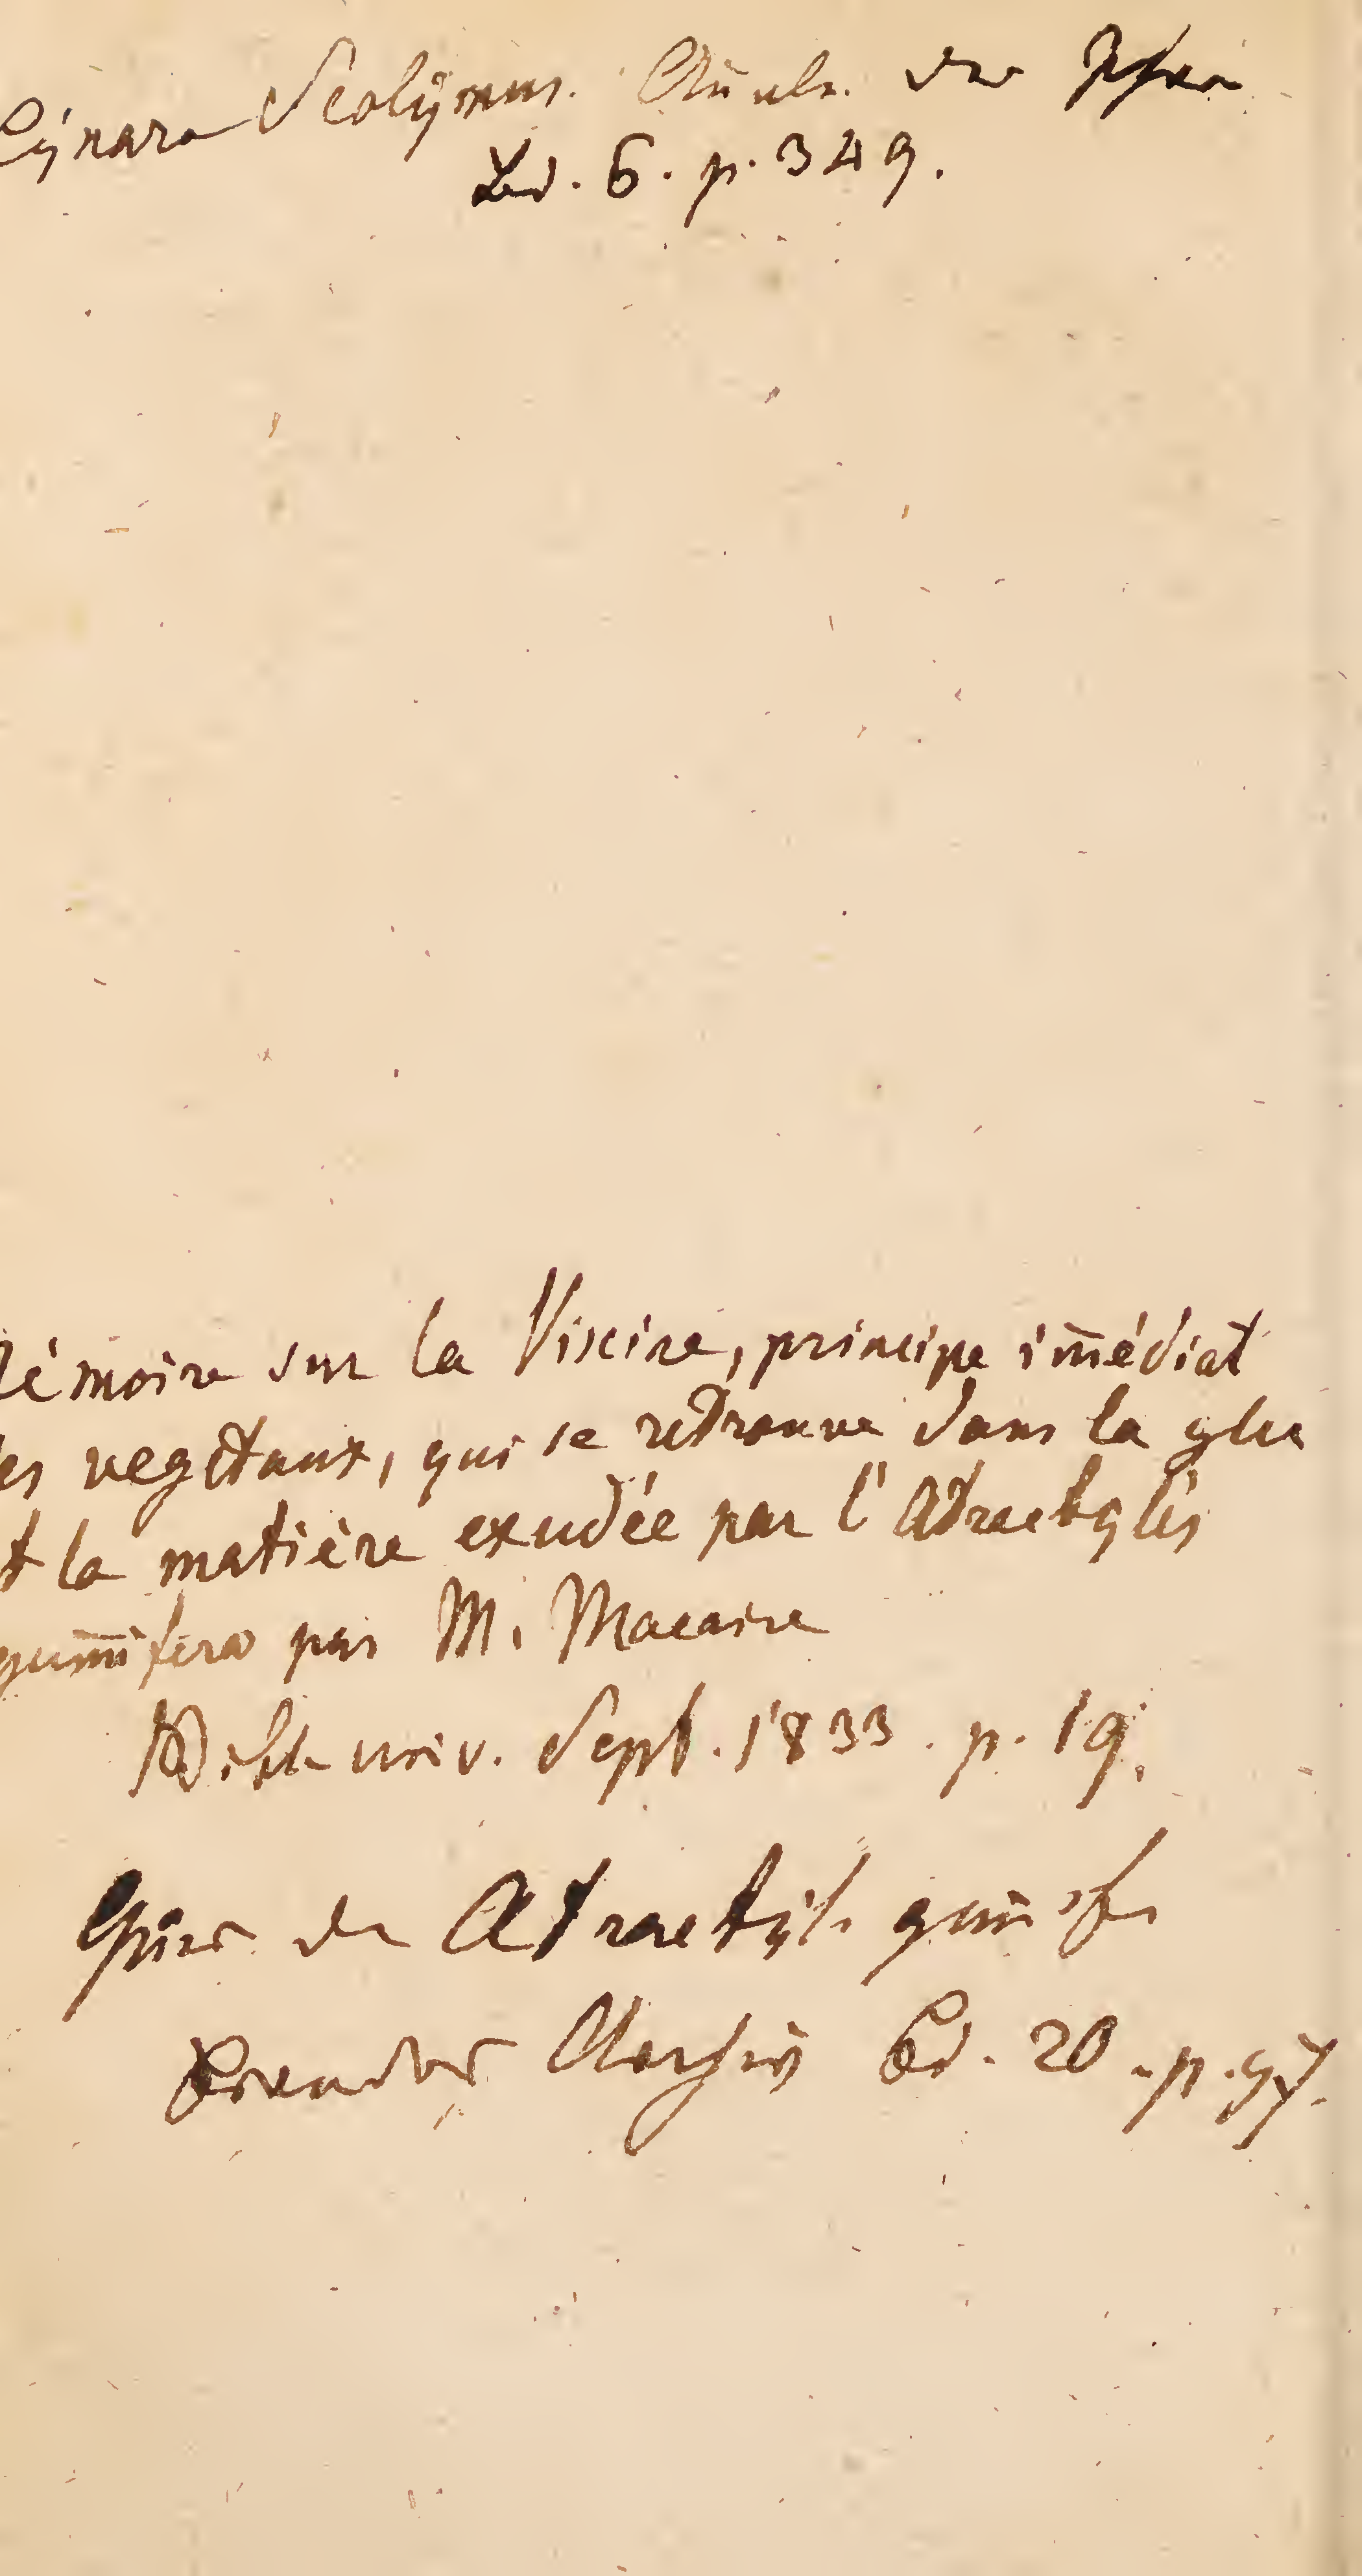 Cynara Scolymus. Annalen der Phar
Bd. 6. p. 349.
émoire sur la Viscine, principe im̄édiat
es vegetaux, qui se retrouve dans la glu
t la matière exudée par l'Atractylis
gum̄ifera par M. Macaire
Bibl. univ. Sept. 1833. p. 19.
de Atractyl. gum̄if.
Brandes Archiv Bd. 20. p. 97.